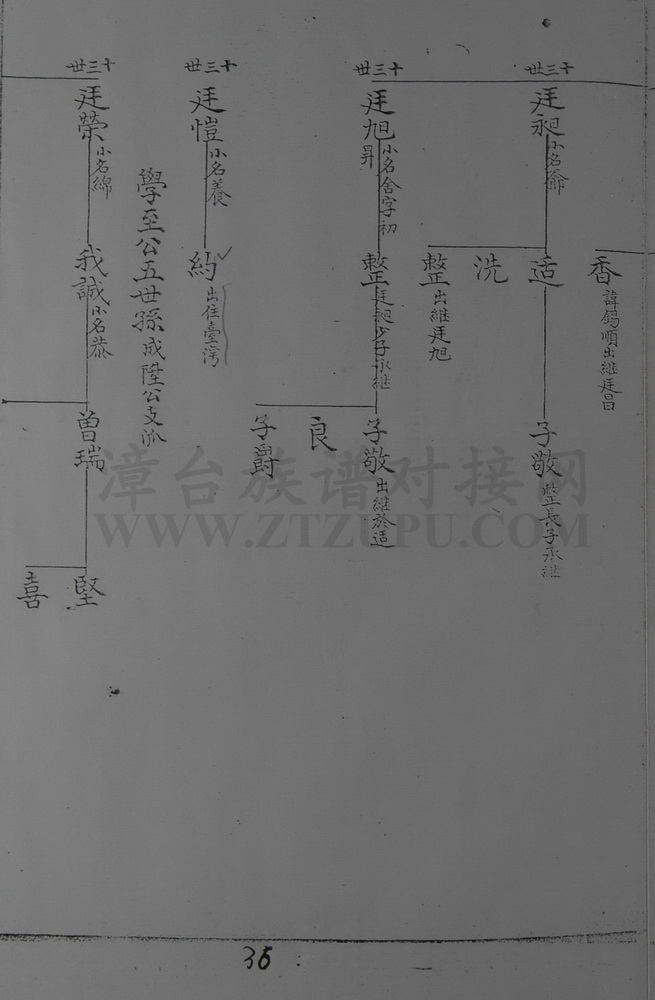 香 諱錫順出繼廷昌
十三世
廷昶 小名爺
适
洗
整 出繼廷旭
子敬 整長子承繼
十三世
廷旭 小名舍字初昇
整 廷昶少子承繼
子敬 出繼於适
良
子爵
十三世
廷愷 小名養
約 出住臺灣
學至公五世孫成陞公支派
十三世
廷榮 小名綿
我誠 小名恭
曾瑞
堅
喜
漳台族谱对接网
WWW.ZTZUPU.COM
36